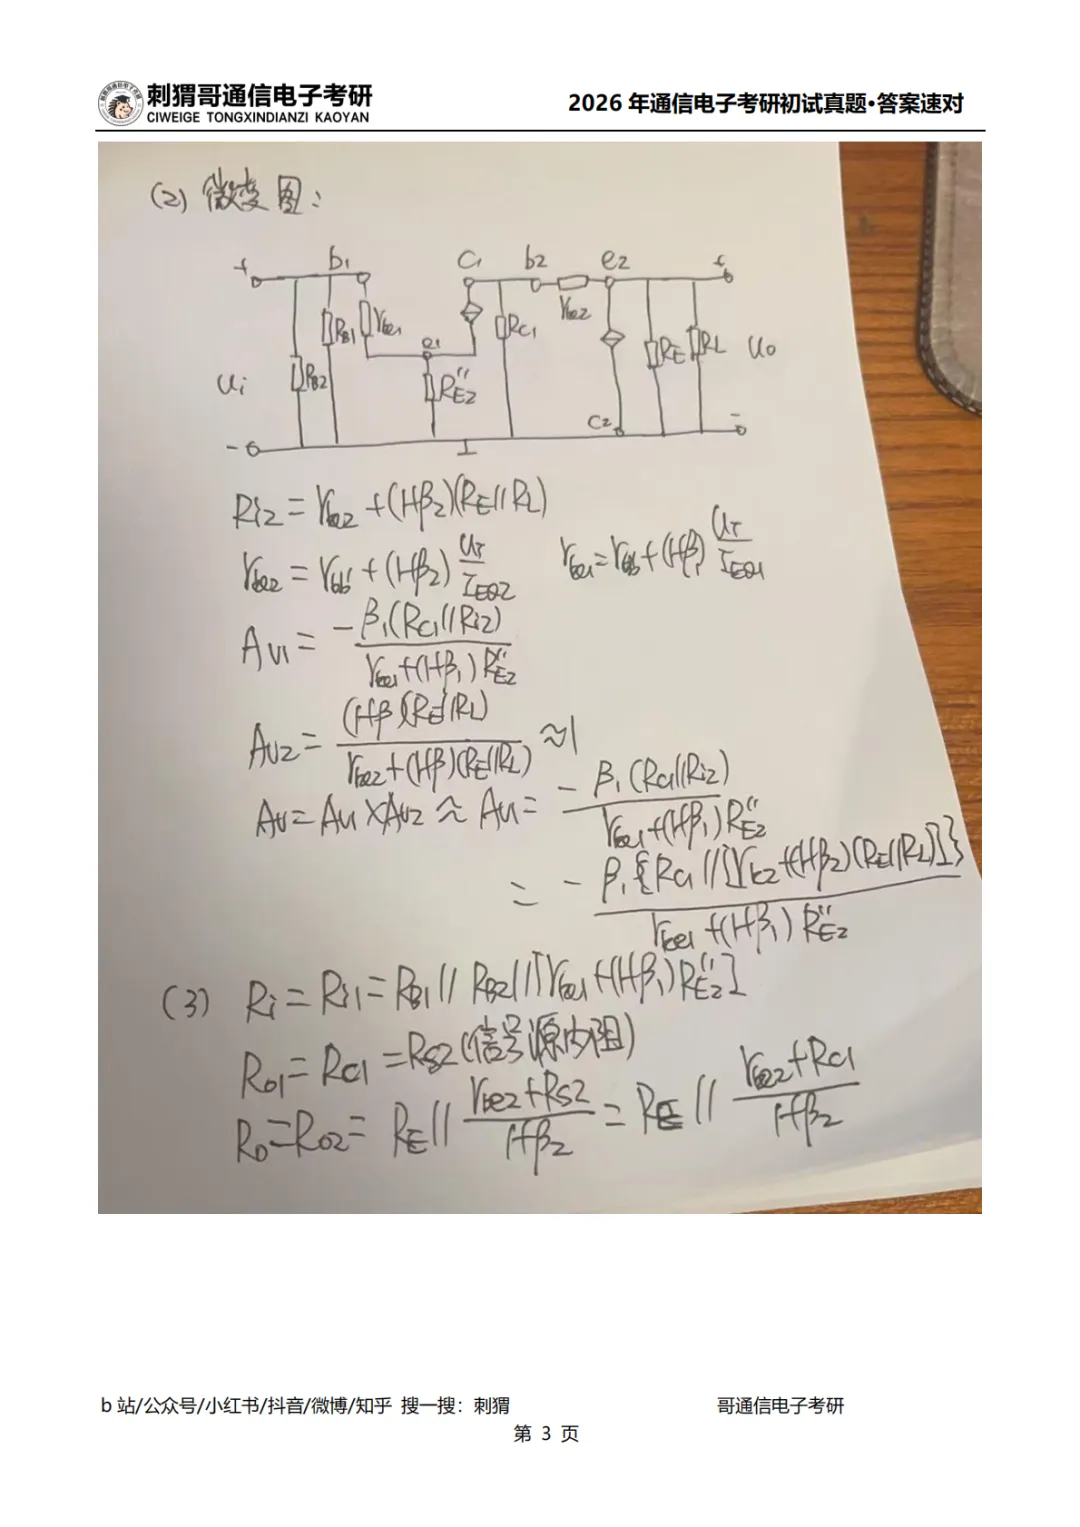 刺猬哥通信电子考研
CIWEIGE TONGXINDIANZI KAOYAN
2026 年通信电子考研初试真题•答案速对
(2) 微变图:
+ b1 C1 b2 e2 +
rbe2
RB1 rbe1 RC1
e1
RE RL Uo
Ui RB2 RE2''
C2
- -
Ri2 = rbe2 + (1+β2)(RE//RL)
rbe2 = rbb' + (1+β2) UT/IEQ2 rbe1 = rbb' + (1+β1) UT/IEQ1
Au1 = -β1(RC1//Ri2) / rbe1+(1+β1)RE2''
Au2 = (1+β)(RE//RL) / rbe2+(1+β)(RE//RL) ≈1
Au = Au1 × Au2 ≈ Au1 = -β1(RC1//Ri2) / rbe1+(1+β1)RE2''
= -β1{RC1//[rbe2+(1+β2)(RE//RL)]} / rbe1+(1+β1)RE2''
(3) Ri = Ri1 = RB1//RB2//[rbe1+(1+β1)RE2'']
Ro1 = RC1 = RS2(信号源内阻)
Ro = Ro2 = RE// rbe2+RS2 / 1+β2 = RE// rbe2+RC1 / 1+β2
b 站/公众号/小红书/抖音/微博/知乎 搜一搜：刺猬 哥通信电子考研
第 3 页